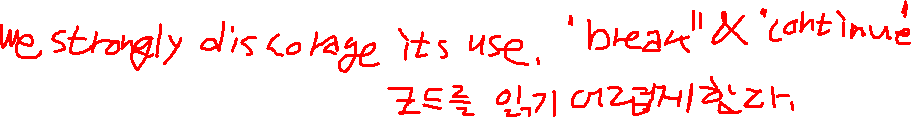 we strongly discorage its use. "break" & "continue"
코드를 읽기 어렵게 한다.